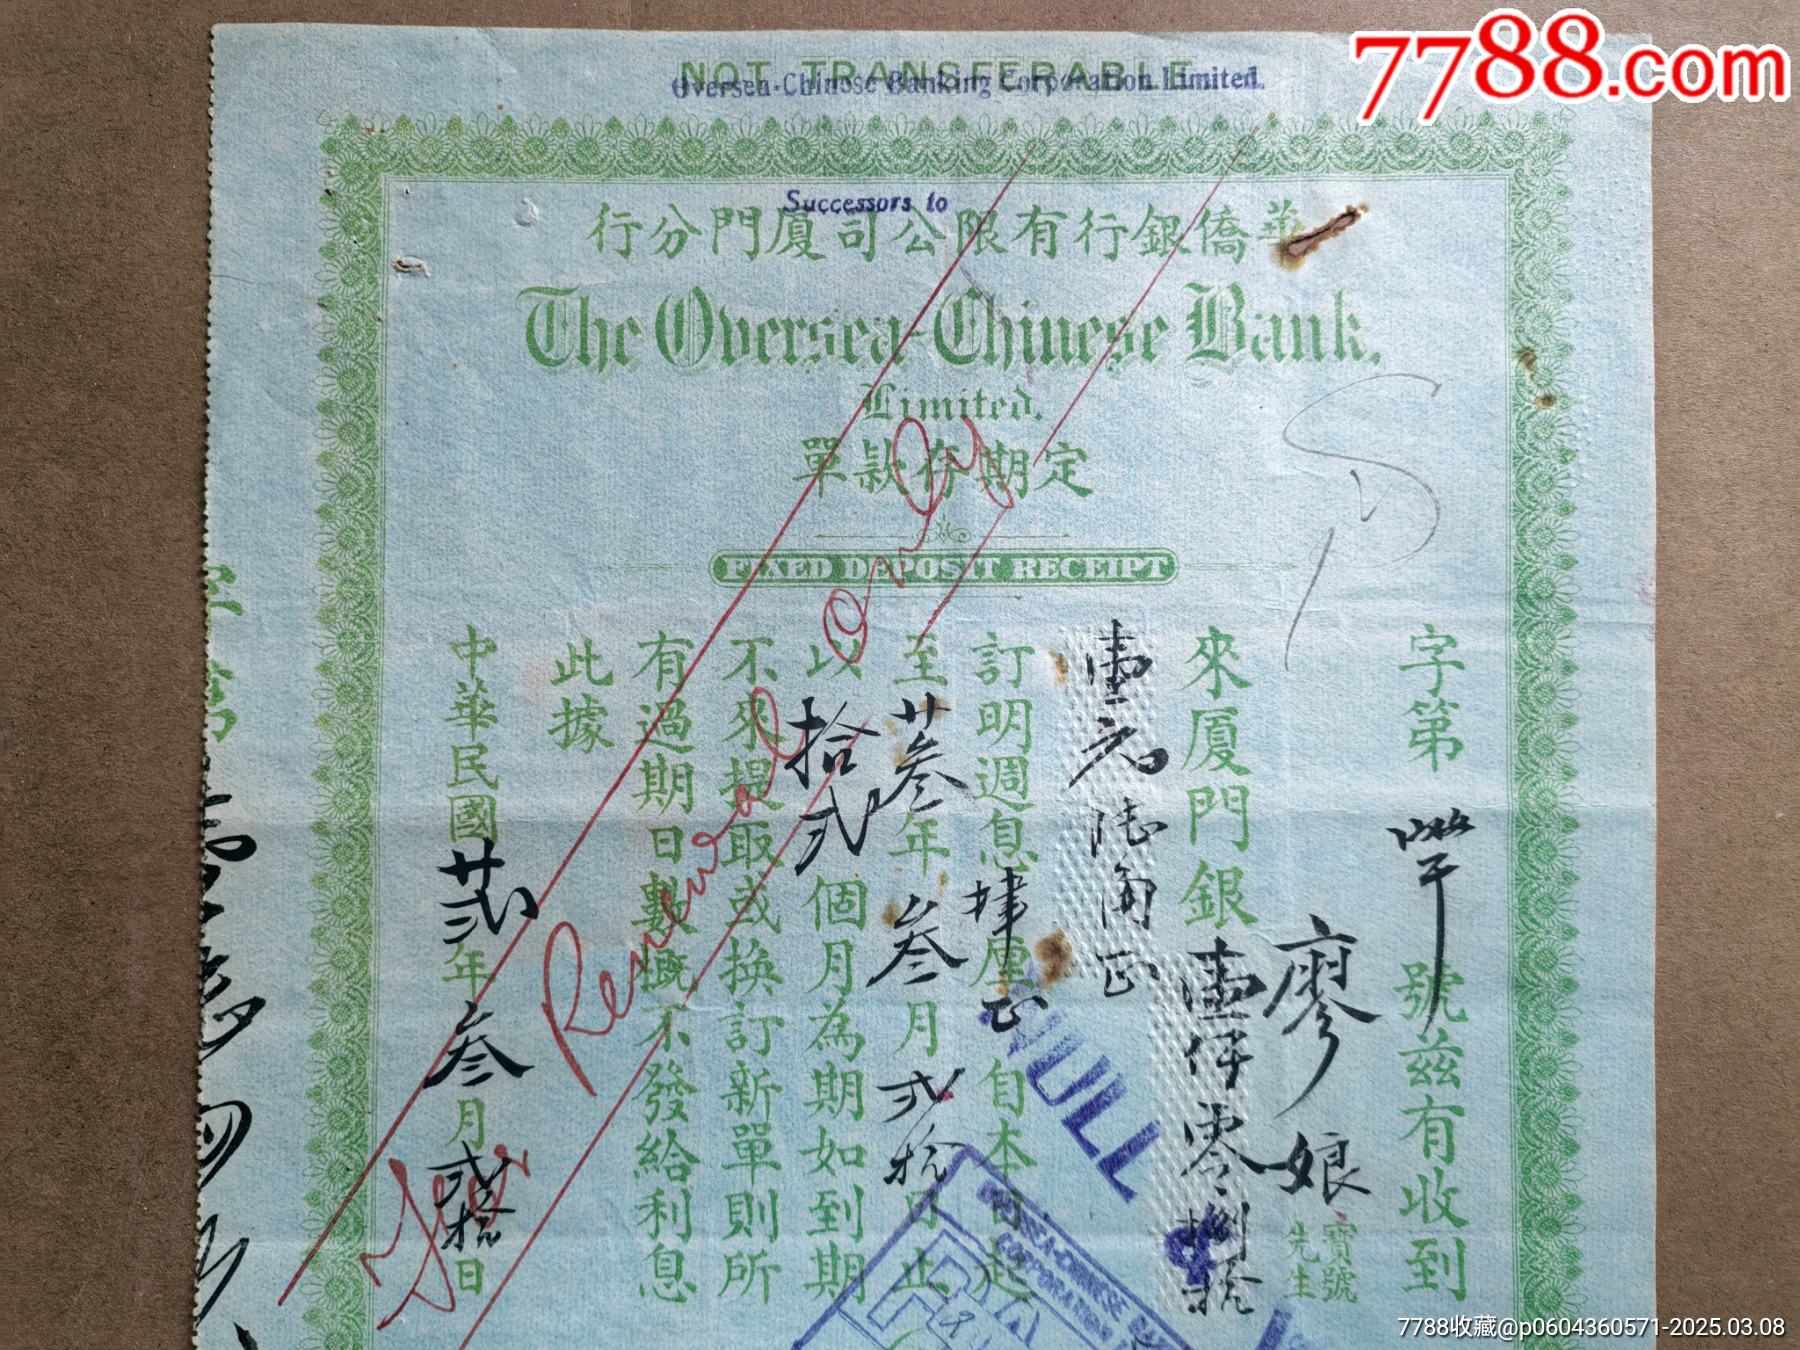 7788.com
NOT TRANSFERABLE
Oversea-Chinese Banking Corporation Limited.
Successors to
華僑銀行有限公司廈門分行
The Oversea-Chinese Bank,
Limited.
定期存款單
FIXED DEPOSIT RECEIPT
字第 號茲有收到
廖娘
寶號
先生
來厦門銀壹仟零捌拾
壹元陆角正
訂明週息肆厘正自本日起
至廿叁年叁月弍拾日止
以拾弍個月為期如到期
不來提取或換訂新單則所
有過期日數概不發給利息
此據
中華民國廿弍年叁月弍拾日
Renewal only
NULL
OVERSEA-CHINESE
CORPORATION
PAID
7788收藏@p0604360571-2025.03.08